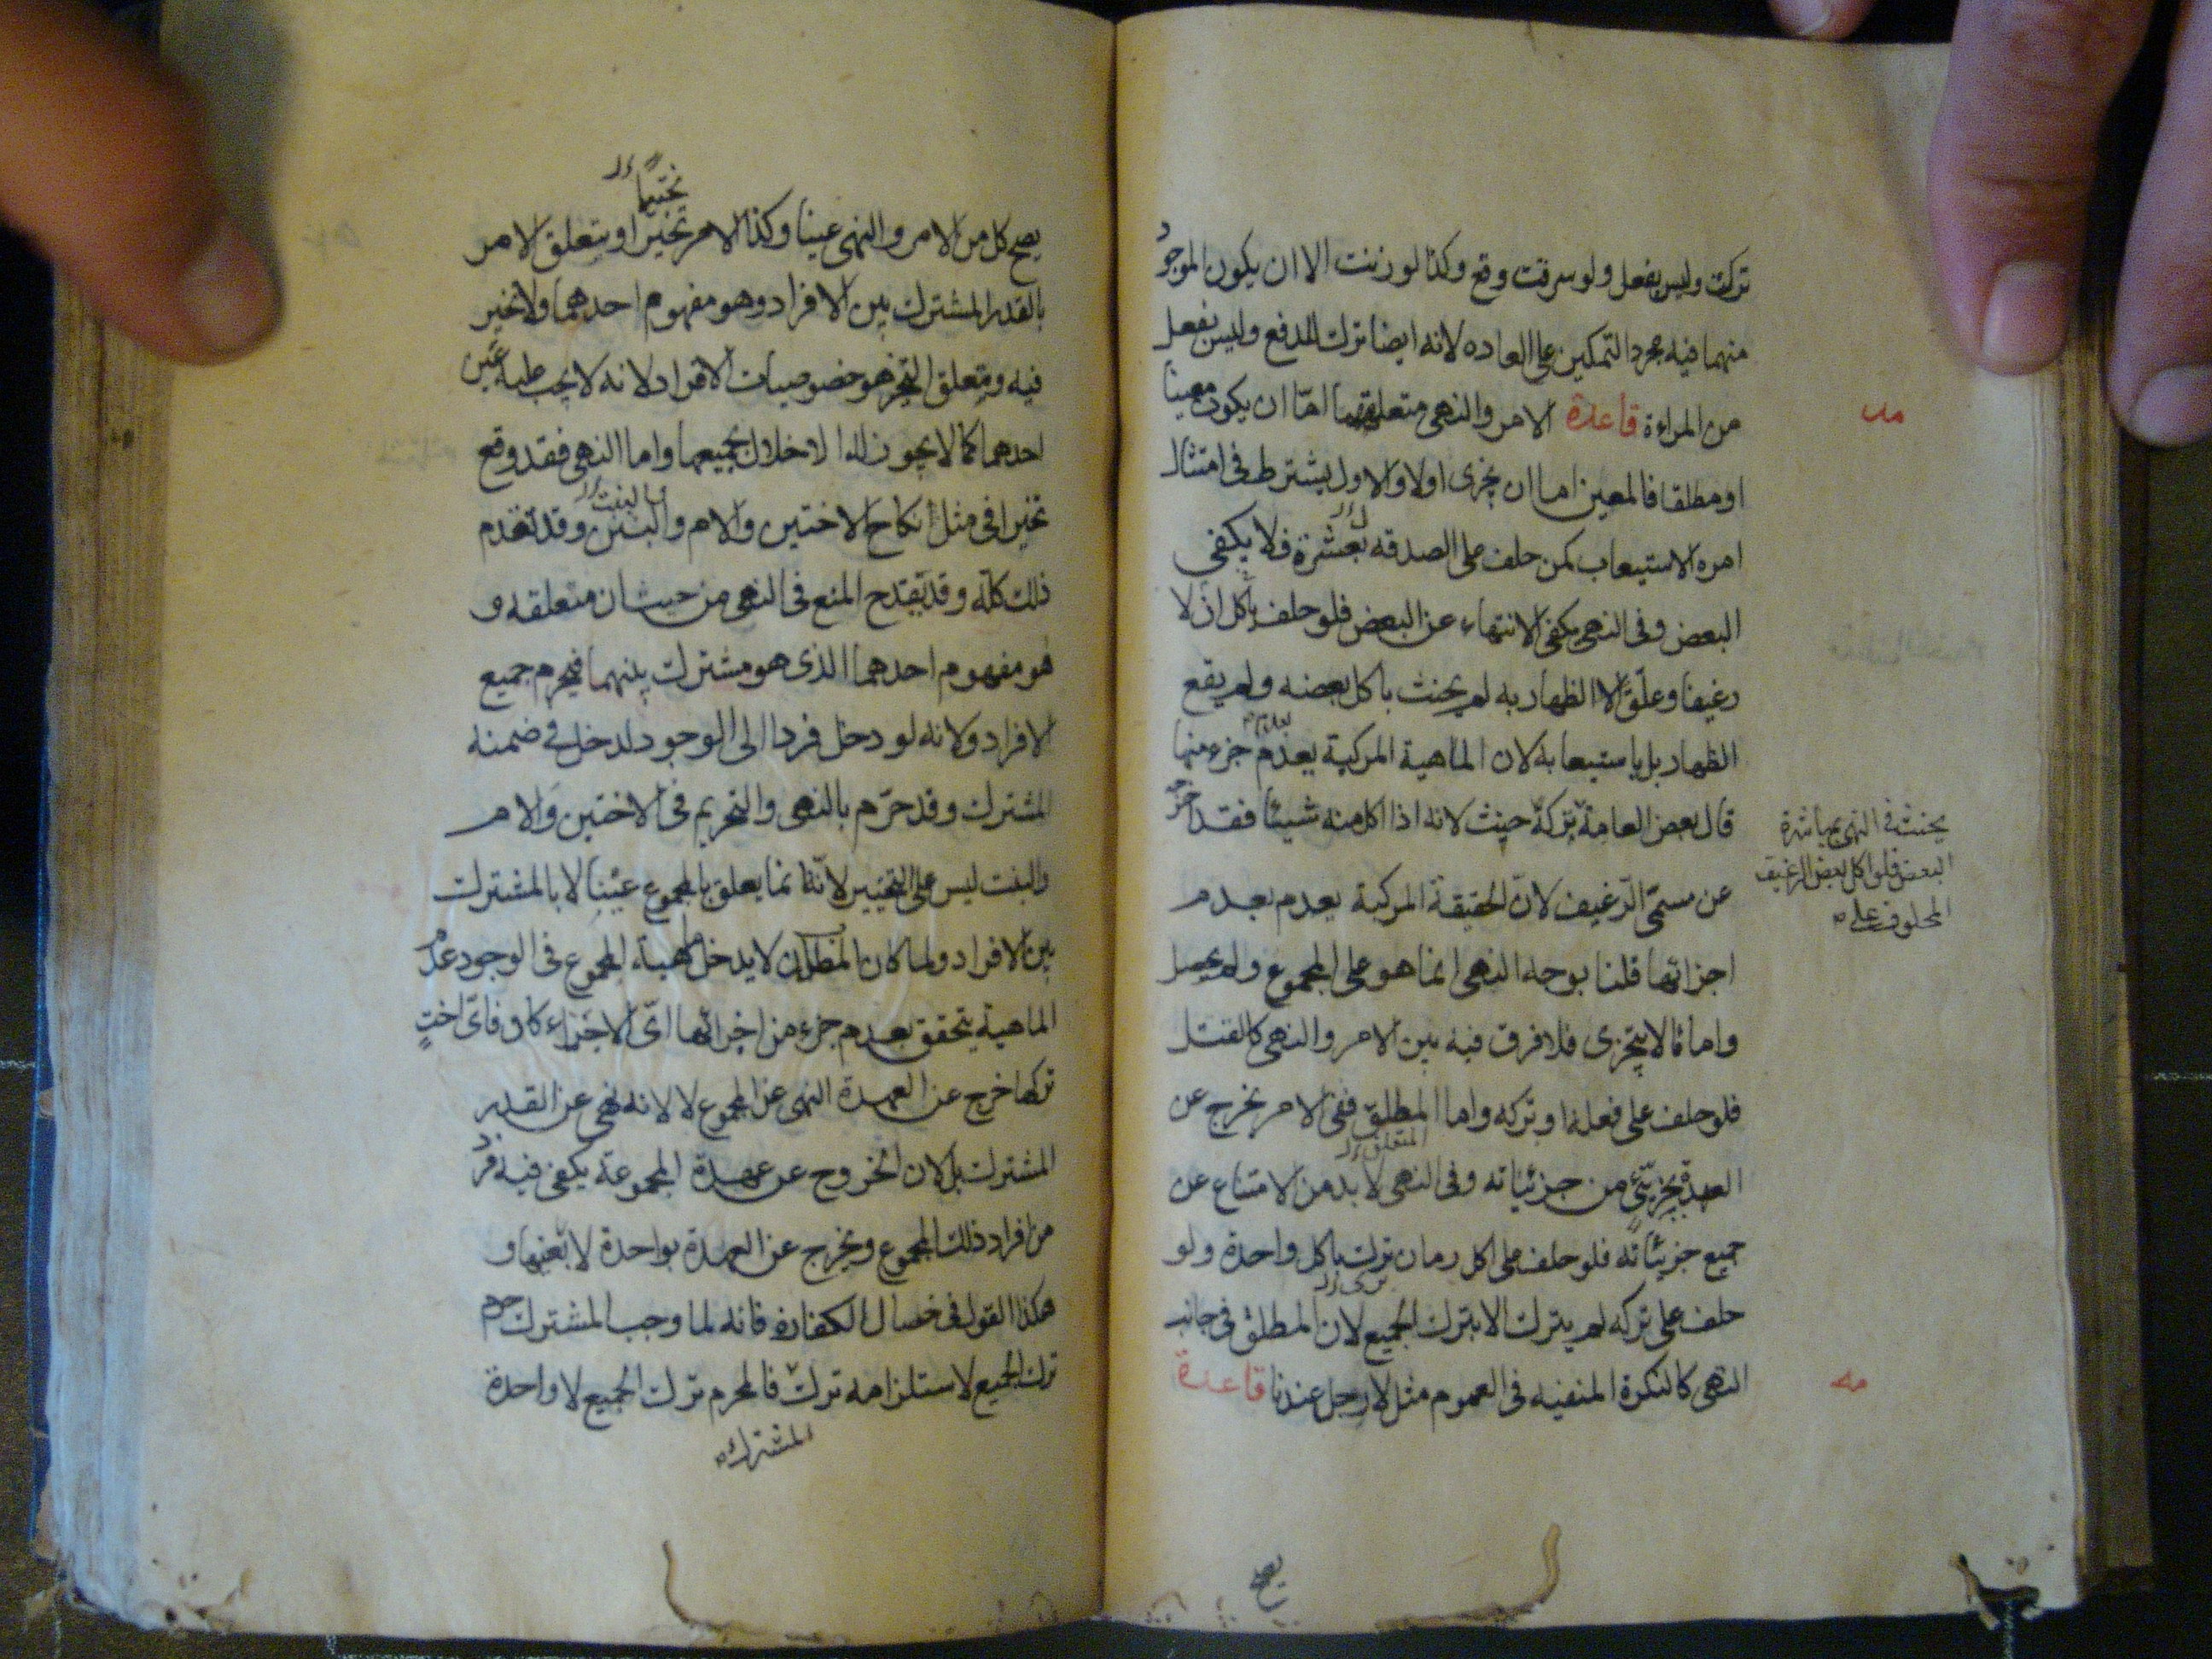 تركت وليس بفعل ولو سرقت وقع وكذا لو زنت الا ان يكون الموجود
منهما فيه مجرد التمكين على العاده لانه ايضا ترك للدفع وليس بفعل
من المراءة قاعدة الامر والنهى متعلقهما امّا ان يكون معينا
او مطلقا فالمعين اما ان يجزى اولا والاول يشترط فى امتثال
امره الاستيعاب كمن حلف على الصدقه بعشرة فلا يكفى
البعض وفى النهى يكفى الانتهاء عن البعض فلو حلف ان لا ياكل
رغيفا وعلّق الظهار به لم يحنث باكل بعضه ولم يقع
الظهار بل باستيعابه لان الماهية المركبة يعدم جزء منها
قال بعض العامة بتركه حيث لانه اذا اكل منه شيئا فقد اخرجه
عن مسمّى الرغيف لانّ الحقيقة المركبة يعدم بعدم
اجزائها قلنا بوجه النهى انما هو على المجموع ولم يحصل
واما ما لا يتجزى فلا فرق فيه بين الامر والنهى كالقتل
فلو حلف على فعله او تركه واما المطلق ففى الامر يخرج عن
العهدة بجزئىّ من جزئياته وفى النهى لا بد من الامتناع عن
جميع جزئياته فلو حلف على اكل رمان برّ باكل واحدة ولو
حلف على تركه لم يترك الا بترك الجميع لان المطلق فى جانب
النهى كالنكرة المنفيه فى العموم مثل لا رجل عندنا قاعدة
يحنث فى النهى بمباشرة
البعض فلو اكل بعض الرغيف
المحلوف عليه
يصح
يصح كل من الامر والنهى عينا وكذا الامر تخيرا ويتعلق الامر
بالقدر المشترك بين الافراد وهو مفهوم احدهما ولا تخير
فيه ومتعلق التخير هو خصوصيات الافراد لانه لا يجب عليه عين
احدهما كما لا يجوز له الاخلال بجميعها واما النهى فقد وقع
تخيرا فى مثل نكاح الاختين والام والبنت وقد تقدم
ذلك كلّه وقد يقدح المنع فى النهى من حيث ان متعلقه و
هو مفهوم احدهما الذى هو مشترك بينهما فيحرم جميع
الافراد ولانه لو دخل فردا الى الوجود لدخل فى ضمنه
المشترك وقد حرّم بالنهى والتحريم فى الاختين والام
والبنت ليس على التخيير لانّه انما يعلق بالمجموع عينا لا بالمشترك
بين الافراد ولما كان المطلوب لا يدخل ماهية المجموع فى الوجود عدم
الماهية يتحقق بعدم جزء من اجزائها اىّ الاجزاء كان فاىّ اختٍ
تركها خرج عن العهدة النهى عن المجموع لا لانه نهى عن القدر
المشترك بل لان الخروج عن عهدة المجموعة يكفى فيه فرد
من افراد ذلك المجموع ويخرج عن العهدة بواحدة لا بعينها و
هكذا القول فى خصال الكفاره فانه لما وجب المشترك حرم
ترك الجميع لاستلزامه ترك فالمحرم ترك الجميع لا واحدة
المشترك